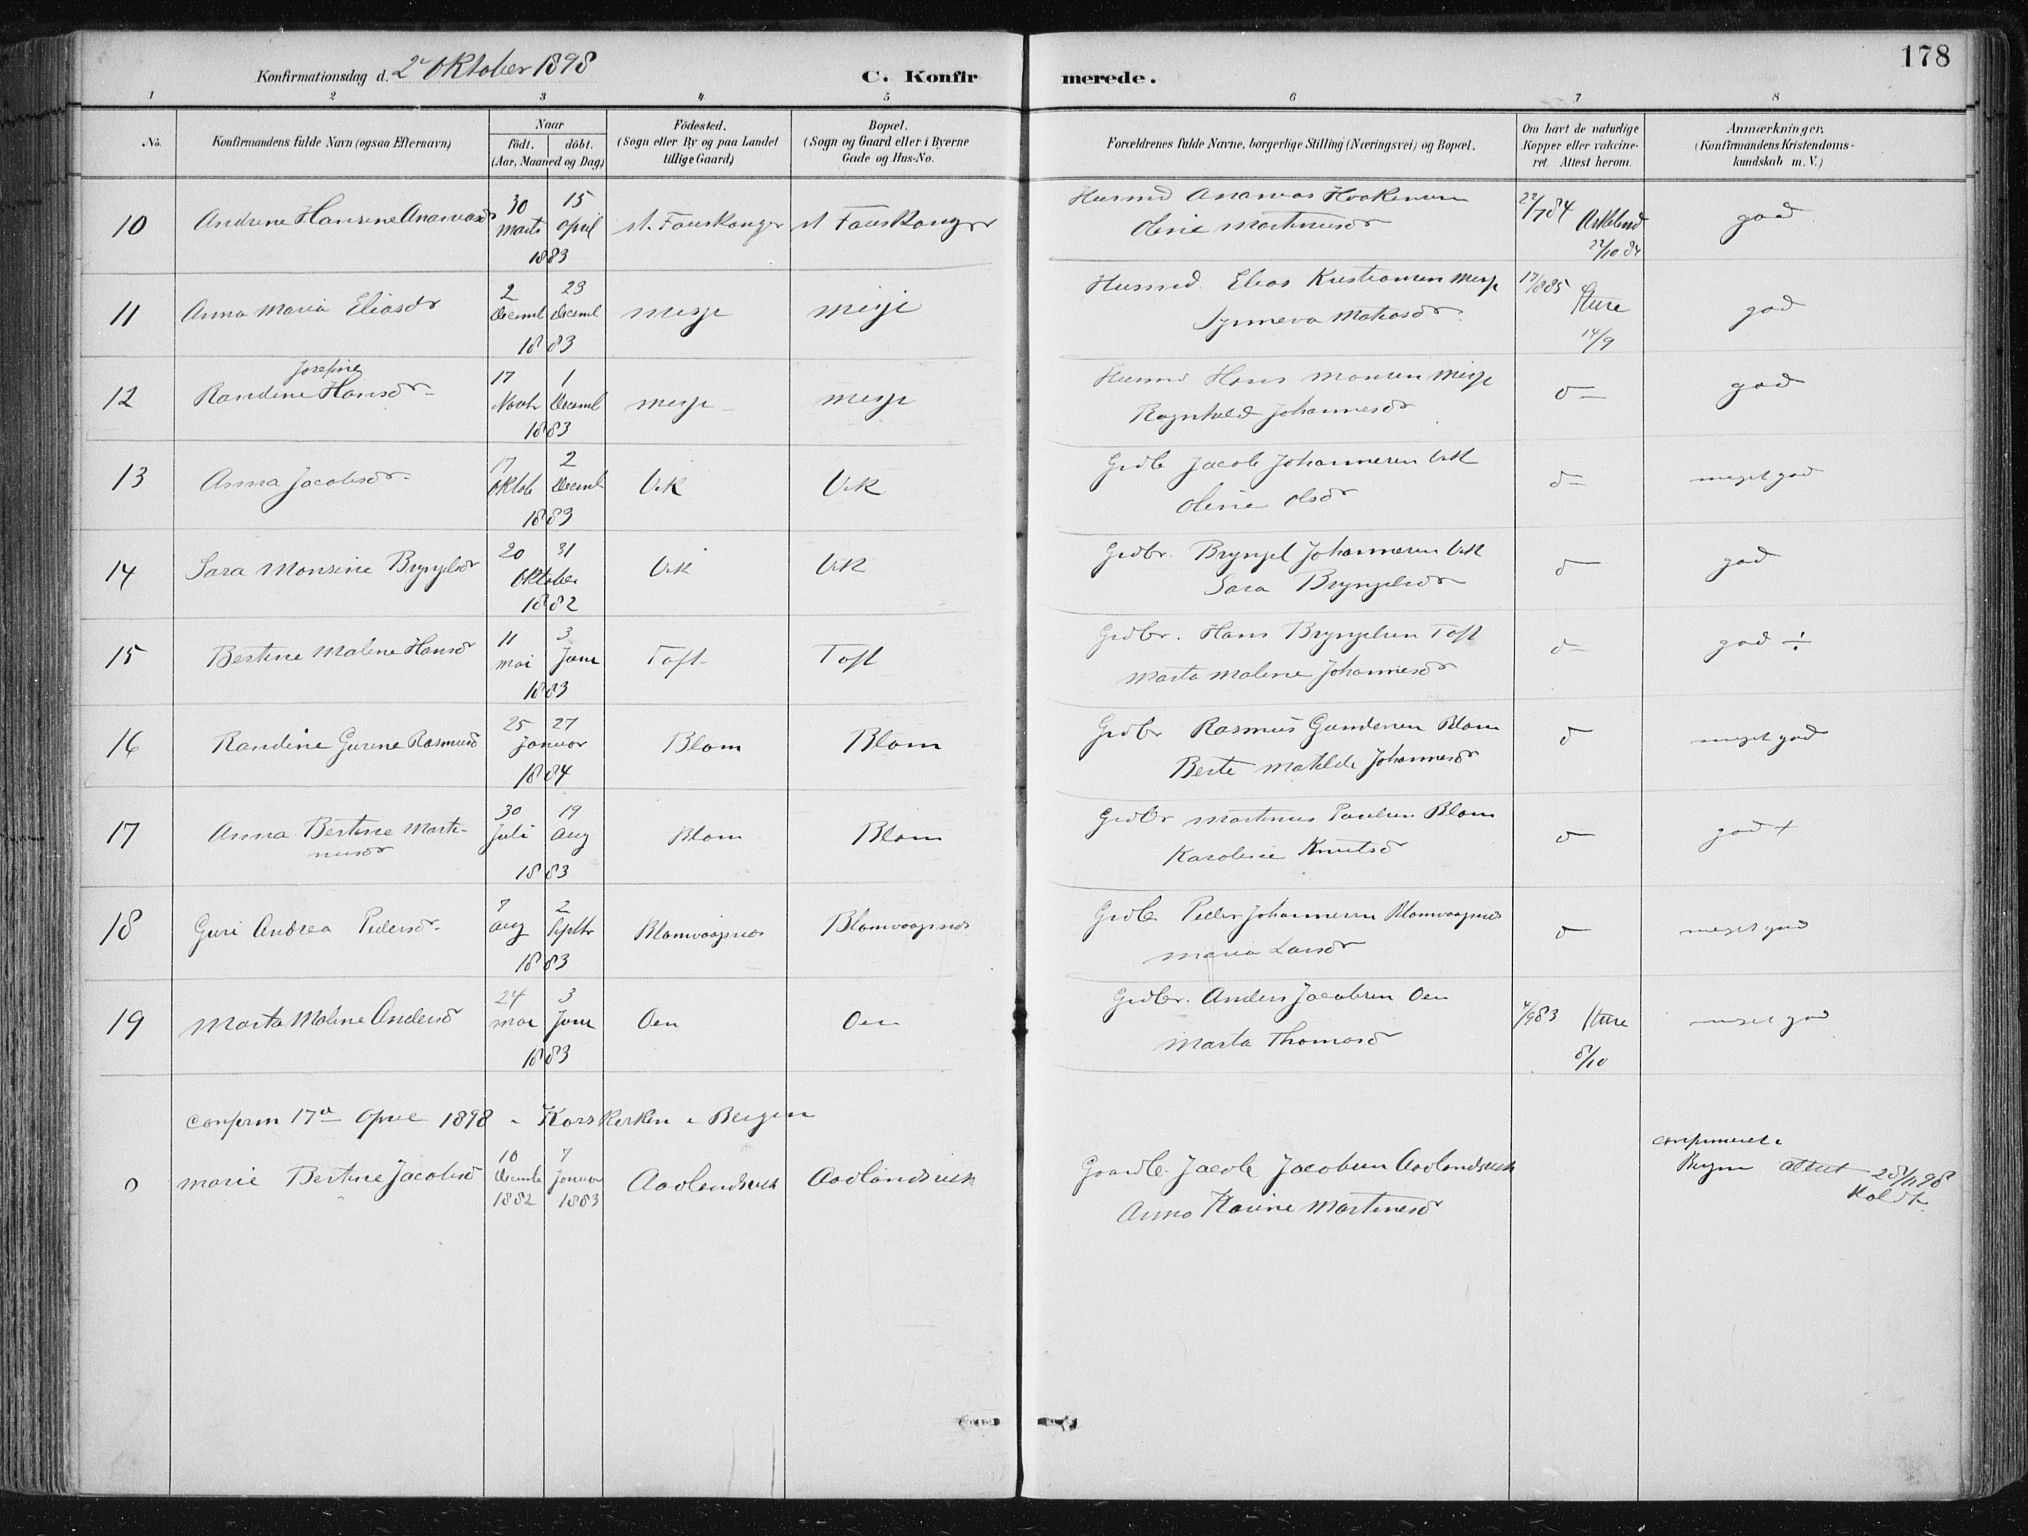 178
Konfirmationsdag d. 2 Oktober 1898 C. Konfir merede.
1 2 3 4 5 6 7 8
No. Konfirmandens fulde Navn (ogsaa Efternavn) Naar födt. döbt. (Aar, Maaned og Dag) Födested. (Sogn eller By og paa Landet tillige Gaard) Bopæl. (Sogn og Gaard eller i Byerne Gade og Hus-No. Forældrenes fulde Navne, borgerlige Stilling (Næringsvei) og Bopæl. Om havt de naturlige Kopper eller vakcineret. Attest herom. Anmærkninger. (Konfirmandens Kristendomskundskab m. V.)
10 Andrine Hansine 30 Marts 15 April 1883 Fauskanger Fauskanger Husmd
Oline Martinusdr 22/7 84 22/10 84 god
11 Anna Maria Eliasdr 2 Decemb 23 Decemb 1883 Misje Misje Husmd. Elias Kristiansen Misje
Synneva 17/8 85 Sture 14/9 god
Josefine
12 Randine Hansdr 17 Novbr 1 Decemb 1883 Misje Misje Husmd Hans Monsen Misje
Ragnhild Johannesdr god
13 Anna Jacobsdr 17 Oktob 2 Decemb 1883 Vik Vik Grdb Jacob Johannesen Vik
Oline Olsdr meget god
14 Sara Monsine Bryngelsdr 20 31 Oktober 1882 Vik Vik Grdbr. Bryngel Johannesen Vik
Sara Bryngelsdr god
15 Bertine Maline Hansdr 11 Mai 3 Juni 1883 Toft Toft Grdbr. Hans Bryngelsen Toft
Marta Maline Johannesdr god ÷
16 Randine Gurine Rasmusd 25 27 Januar 1884 Blom Blom Grdbr Rasmus Gundersen Blom
Berte Matilde Johannesdr meget god
17 Anna Bertine Marti-
nusdr 30 Juli 19 Aug 1883 Blom Blom Grdbr Martinus Paulsen Blom
Karoline Knutsdr god +
18 Guri Andrea Pedersdr 7 Aug 2 Septbr 1883 Blomvaagnes Blomvaagsnes Grdb. Peder Johannesen Blomvaagnes
Maria Larsdr meget god
19 Marta Maline Andersd 24 Mai 3 Juni 1883 Oen Oen Grdbr. Anders Jacobsen Oen
Marta Thomasdr 4/9 83 Sture 8/10 meget god
confirm 17de April 1898 i Korskirken i Bergen
0 Marie Bertine Jacobsd 10 Decemb 1882 7 Januar 1883 Aadlandsvik Aadlandsvik Gaardb. Jacob Jacobsen Aadlandsvik
Anna Karine Martinsdr confirmeret i
Bergen attest